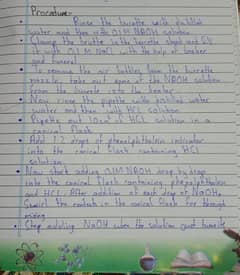 Procedure:-
Rinse the burette with distilled
water and then with 0.1M NaOH solution
Clamp the burette in the burette stand and fill
it with 0.1 M NaOH with the help of beaker
and funnel
To remove the air bubbles from the burette
nozzle, take out some of the NaOH solution
from the burette into the beaker
Now rinse the pipette with distilled water
water and then with HCl solution
Pipette out 10cm³ of HCl solution in a
conical flask
Add 1-2 drops of phenolphthalein indicator
into the conical flask containing HCl
solution.
Now start adding 0.1M NaOH drop by drop
into the conical flask containing phenolphthalein
and HCl. After addition of each drop of NaOH,
Swirl the content in the conical flask for through
mixing
Stop adding NaOH when the solution just turns